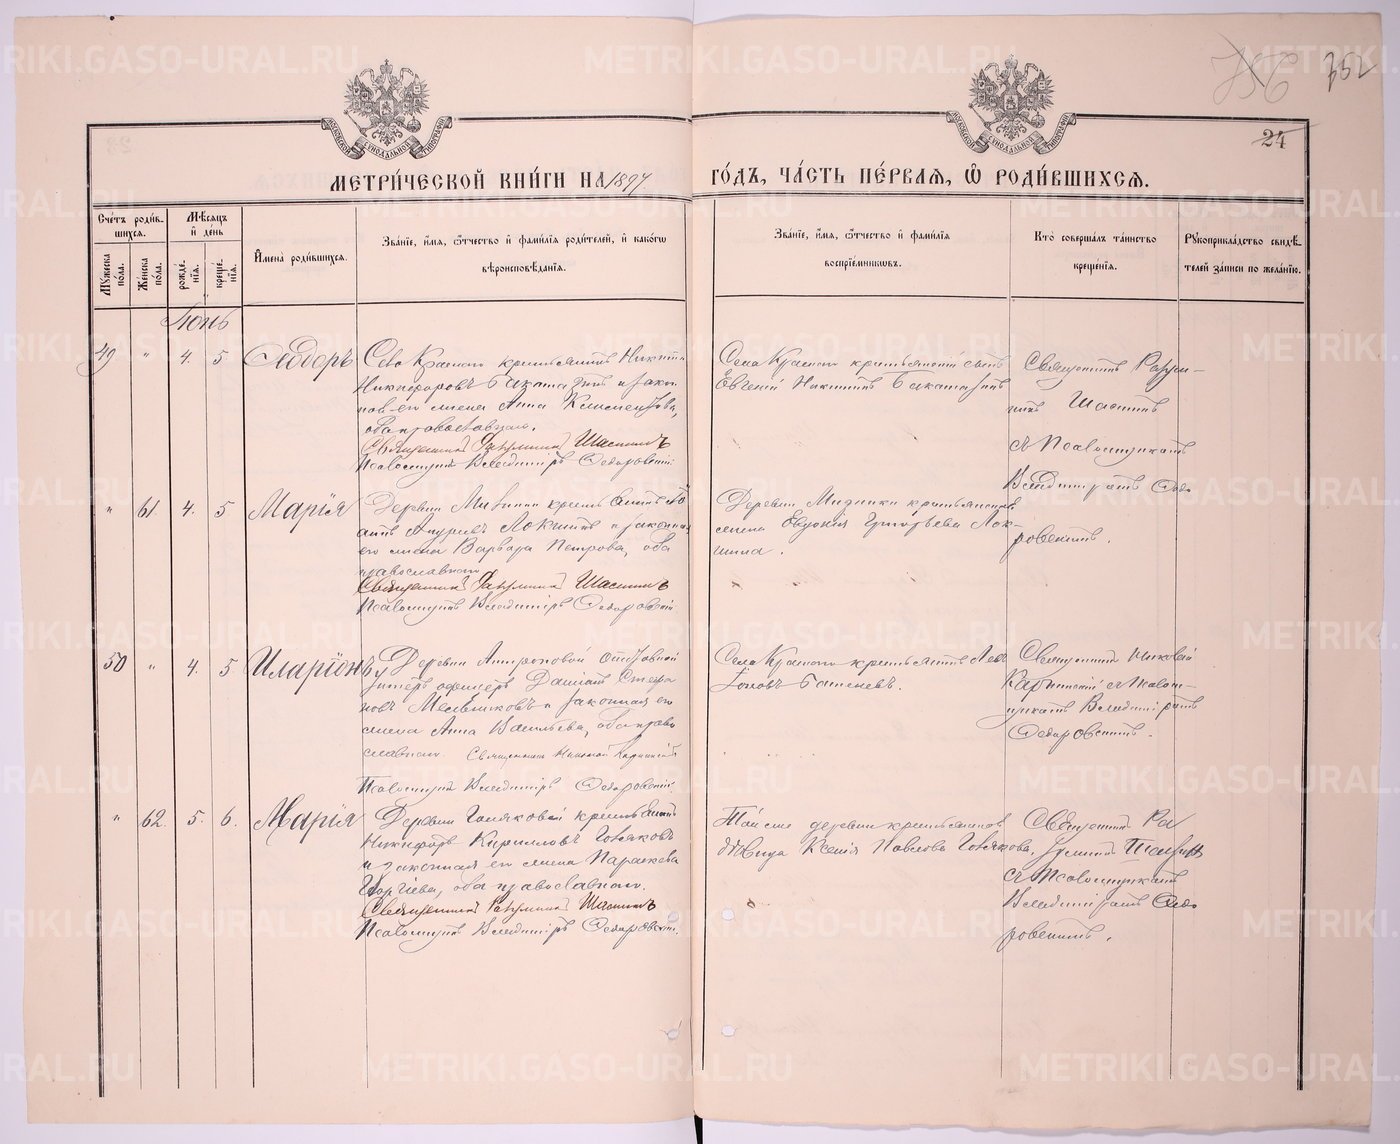 752
24
МЕТРИ́ЧЕСКОЙ КНИ́ГИ НА 1897 ГО́ДЪ, ЧА́СТЬ ПЕ́РВАЯ, Ѡ РОДИ́ВШИХСЯ.
Сче́тъ роди́вшихся.
Му́жеска по́ла.
Же́нска по́ла.
Мѣ́сяцъ и де́нь
рожде́нїя.
креще́нїя.
И҆мена̀ роди́вшихся.
Зва́нїе, и҆́мя, ѻ҆́тчество и҆ фами́лїя роди́телей, и҆ како́гѡ
вѣроисповѣ́данїя.
Зва́нїе, и҆́мя, ѻ҆́тчество и҆ фами́лїя
воспрїе́мникѡвъ.
Кто̀ соверша́лъ та́инство
креще́нїя.
Рꙋкоприкла́дство свидѣ́-
телей за́писи по жела́нїю.
Іюнь
49 " 4. 5 Ѳеодоръ
Села Краснаго крестьянинъ Никита
Никифоровъ и закон-
ная его жена Анна Климентова,
оба православные.
Священникъ Разумникъ Шастинъ
Псаломщикъ Владиміръ Ѳедоровскій
Села Краснаго крестьянскій сынъ
Евгеній Никитинъ
Священникъ Разум-
никъ Шастинъ
съ Псаломщикомъ
Владиміромъ Ѳедо-
ровскимъ.
" 61. 4. 5 Марія
Деревни крестьянинъ
Локшинъ и законная
его жена Варвара Петрова, оба
православные
Священникъ Разумникъ Шастинъ
Псаломщикъ Владиміръ Ѳедоровскій
Деревни крестьянская
жена Евдокія Григорьева Лок-
шина.
50 " 4. 5 Иларіонъ
Деревни Антроповой отставной
унтеръ офицеръ Даніилъ Стефа-
новъ Мельниковъ и законная его
жена Анна Васильева, оба право-
славные. Священникъ Николай Карпинскій
Псаломщикъ Владиміръ Ѳедоровскій
Села Краснаго крестьянинъ Левъ
Іоновъ
Священникъ Николай
Карпинскій съ Псалом-
щикомъ Владиміромъ
Ѳедоровскимъ.
" 62. 5. 6. Марія
Деревни Гусяковой крестьянинъ
Никифоръ Кирилловъ Гусяковъ
и законная его жена Параскева
Георгіева, оба православные.
Священникъ Разумникъ Шастинъ
Псаломщикъ Владиміръ Ѳедоровскій.
Той же деревни крестьянская
дѣвица Ксенія Павлова Гусякова.
Священникъ Ра-
зумникъ Шастинъ
съ Псаломщикомъ
Владиміромъ Ѳедо-
ровскимъ.
METRIKI.GASO-URAL.RU